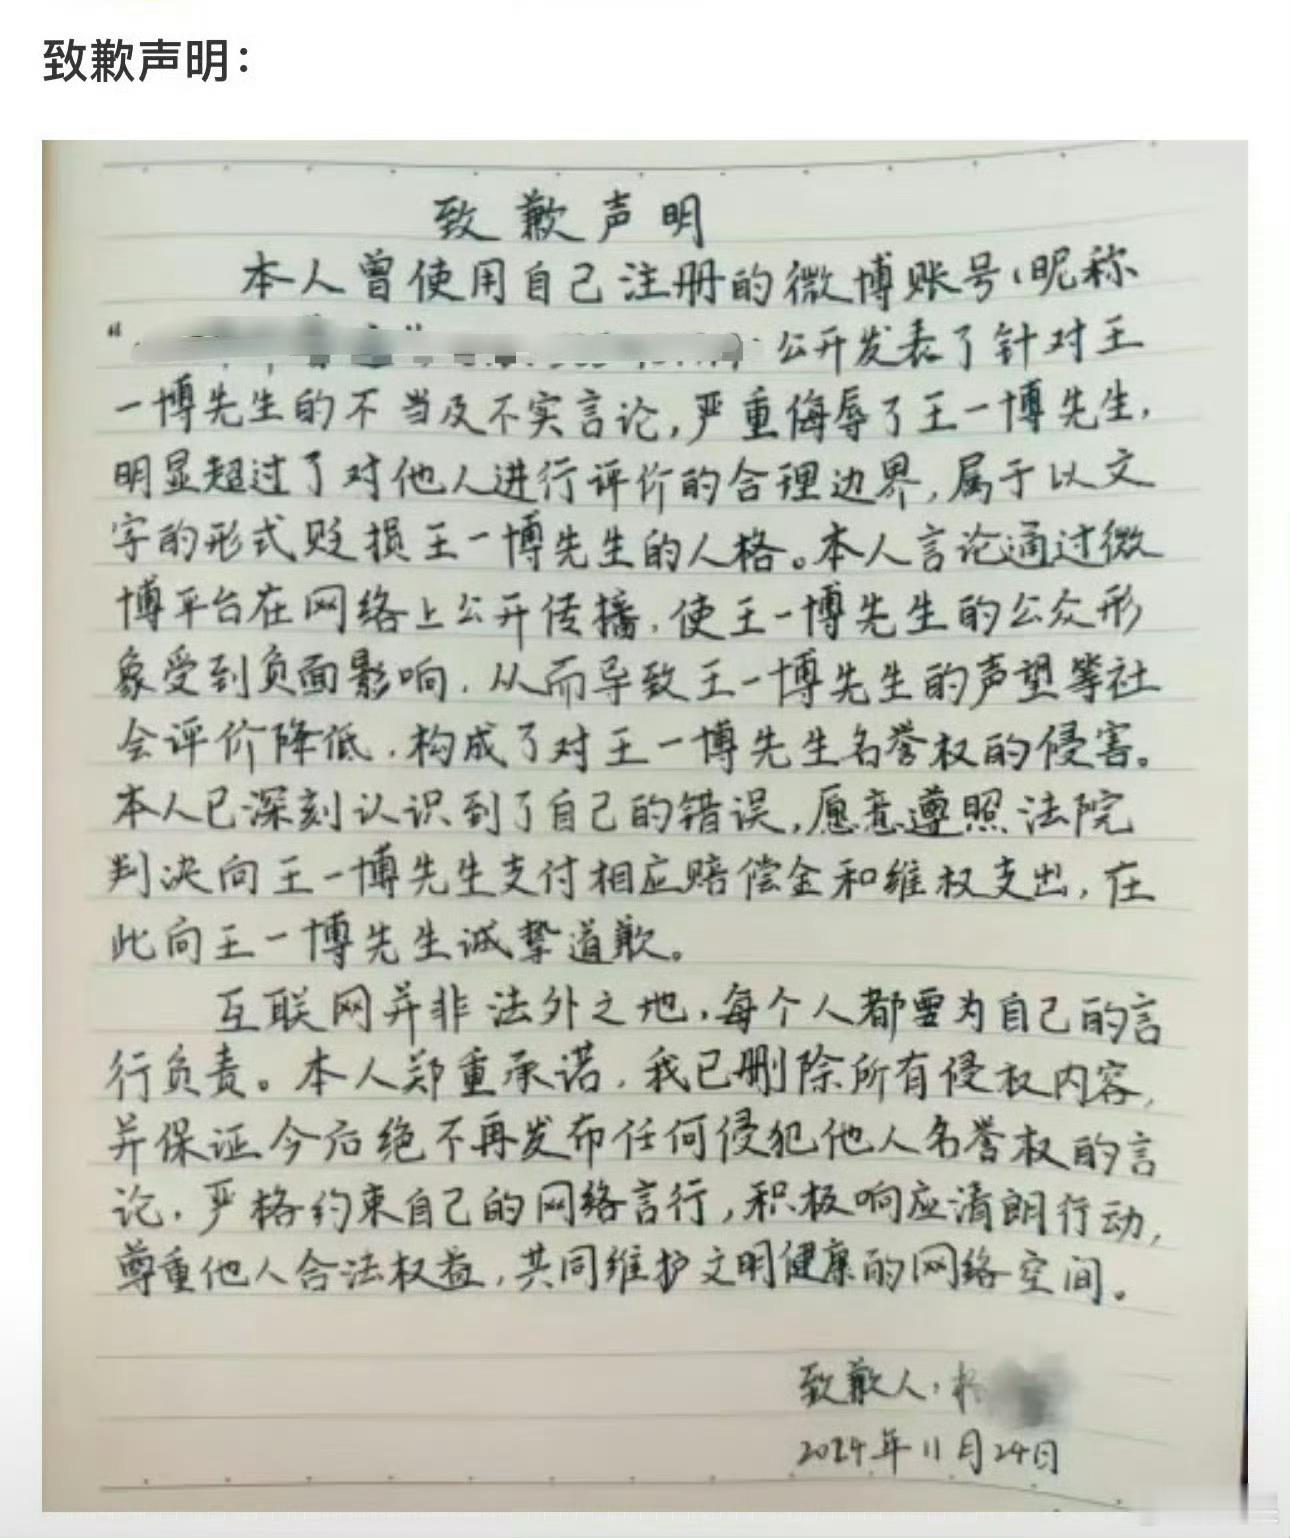 致歉声明：
致歉声明
本人曾使用自己注册的微博账号（昵称
“
公开发表了针对王
一博先生的不当及不实言论，严重侮辱了王一博先生，
明显超过了对他人进行评价的合理边界，属于以文
字的形式贬损王一博先生的人格。本人言论通过微
博平台在网络上公开传播，使王一博先生的公众形
象受到负面影响，从而导致王一博先生的声望等社
会评价降低，构成了对王一博先生名誉权的侵害。
本人已深刻认识到了自己的错误，愿意遵照法院
判决向王一博先生支付相应赔偿金和维权支出，在
此向王一博先生诚挚道歉。
互联网并非法外之地，每个人都要为自己的言
行负责。本人郑重承诺，我已删除所有侵权内容，
并保证今后绝不再发布任何侵犯他人名誉权的言
论，严格约束自己的网络言行，积极响应清朗行动，
尊重他人合法权益，共同维护文明健康的网络空间。
致歉人：杨
2024年11月24日